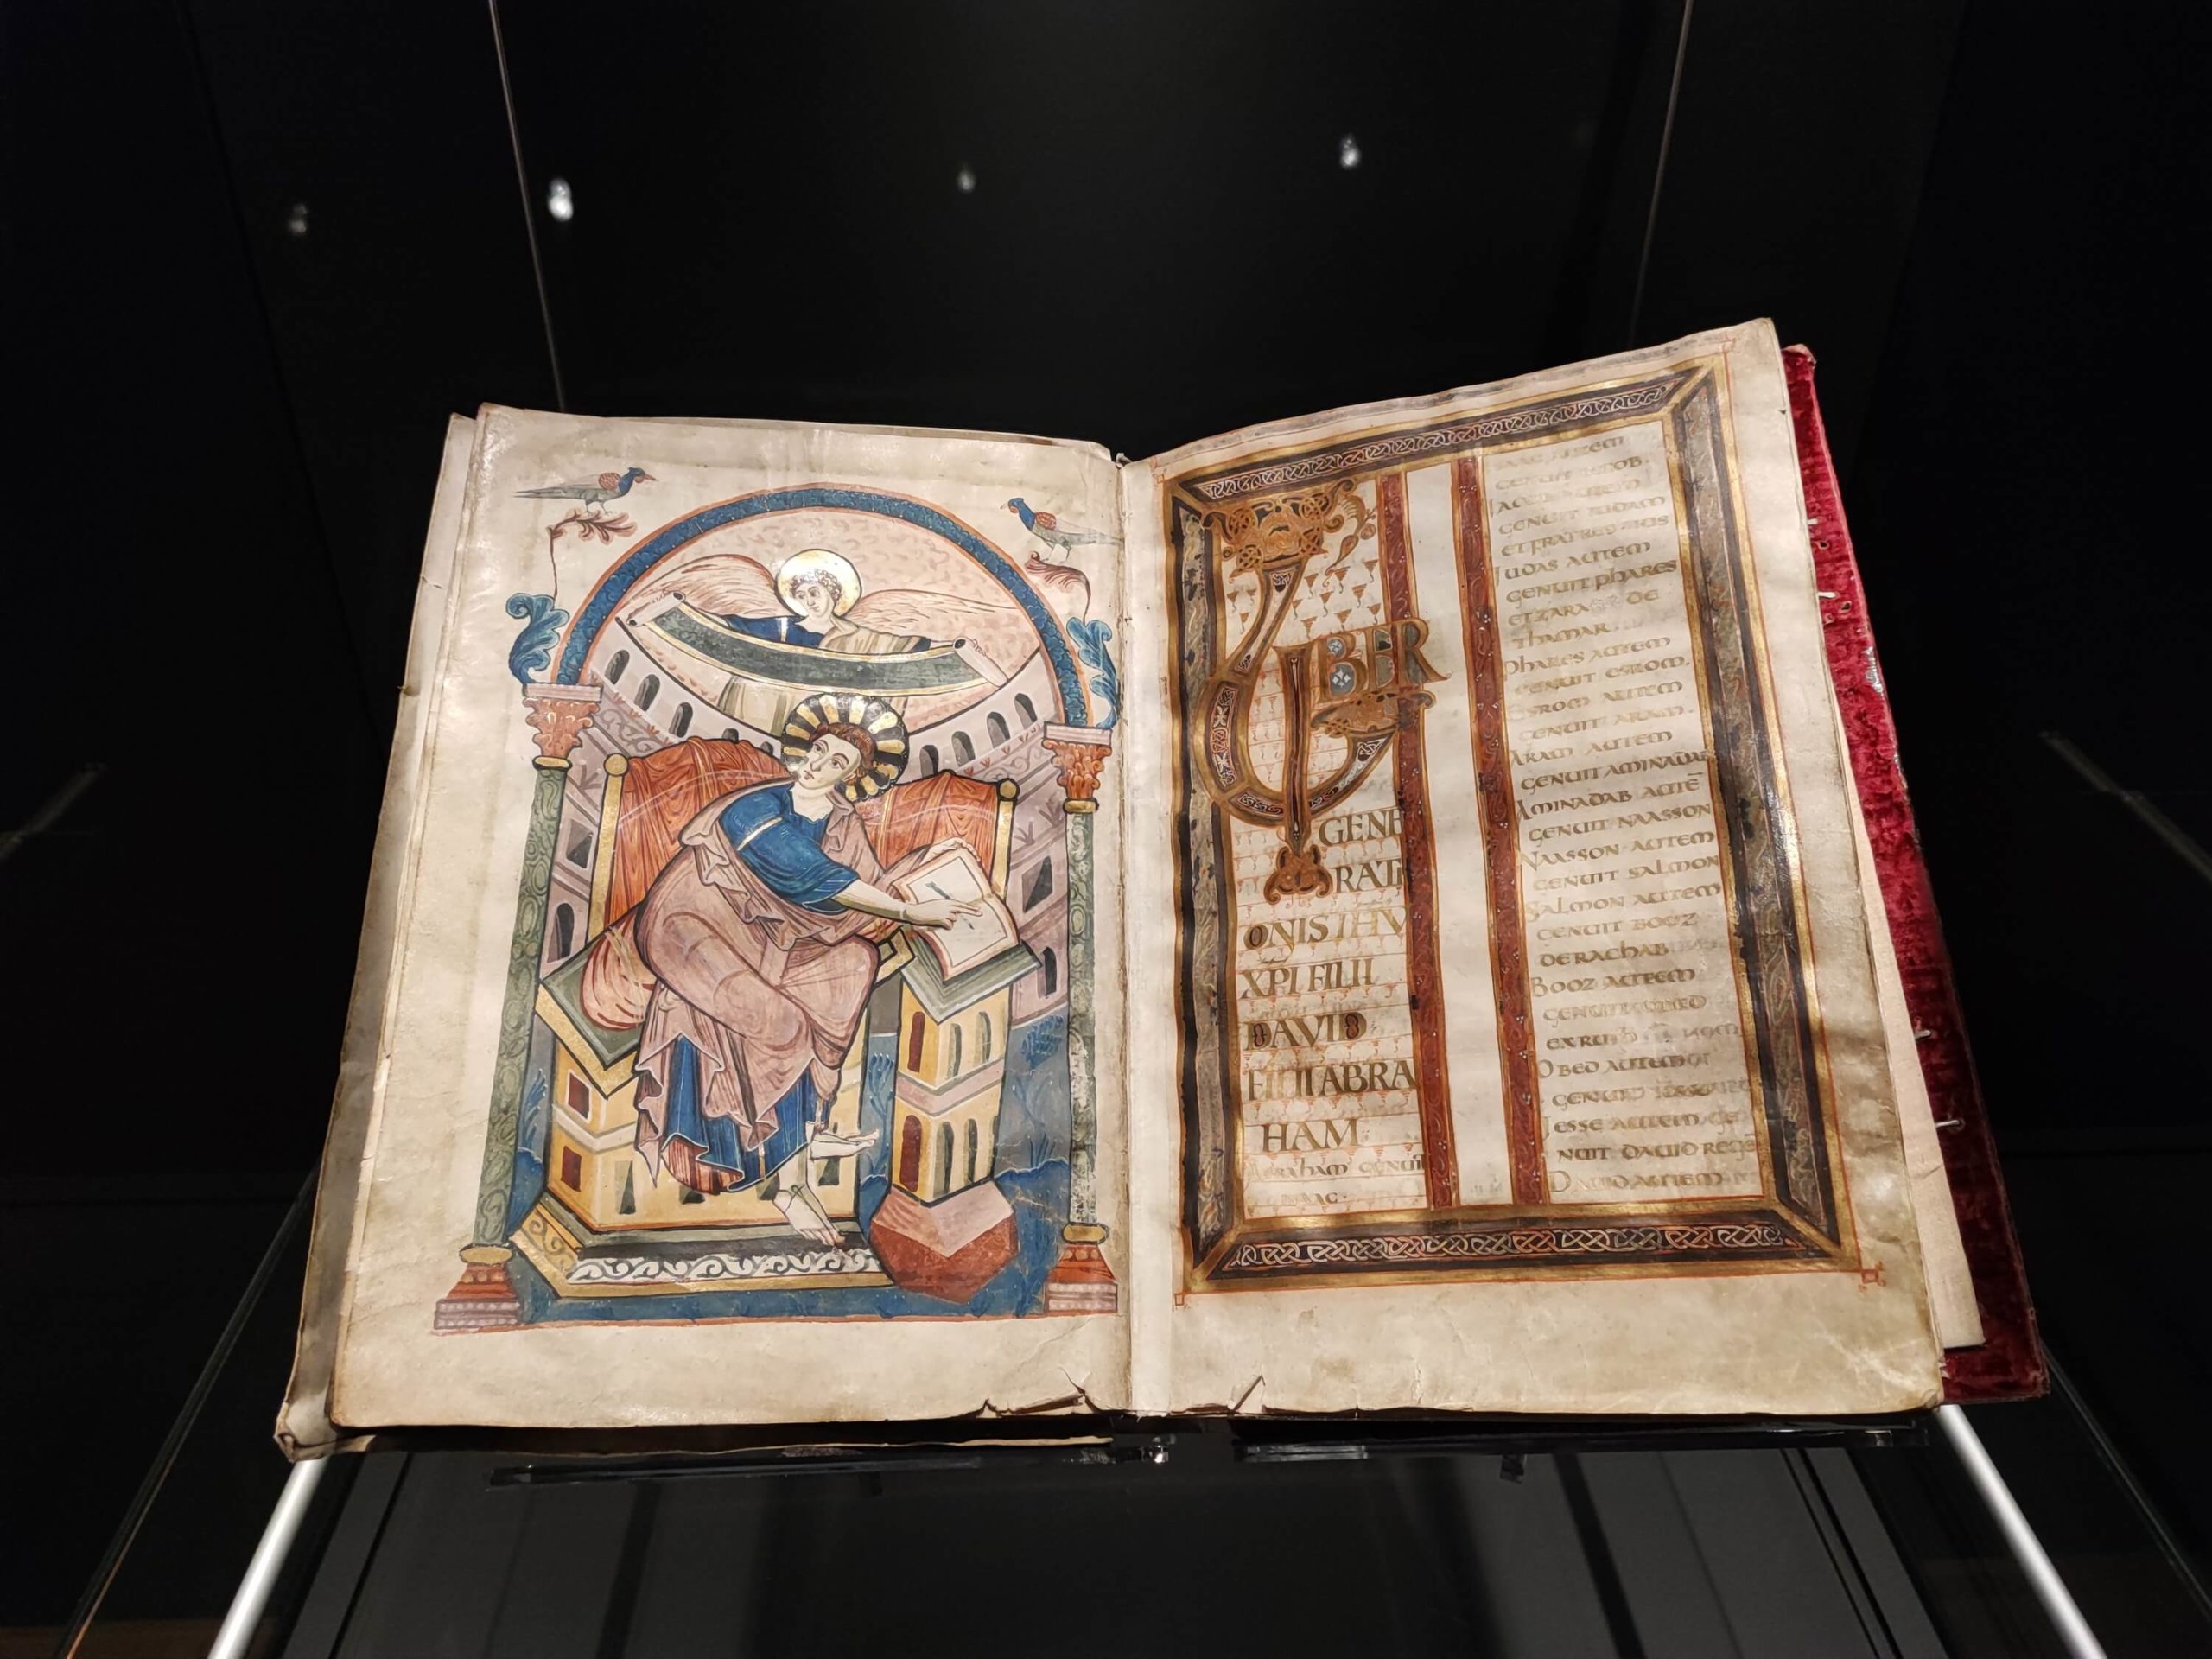 LIBER
GENE
RATI
ONIS IHV
XPI FILII
DAVID
FILII ABRA
HAM
Abraham genuit
isaac.
isaac autem
genuit iacob.
Iacob autem
genuit iudam
et fratres eius
Iudas autem
genuit phares
et zara de
thamar.
Phares autem
genuit esrom.
Esrom autem
genuit aram.
Aram autem
genuit aminadab
Aminadab autē
genuit naasson
Naasson autem
genuit salmon
Salmon autem
genuit booz
de rachab
Booz autem
genuit obed
ex ruth
Obed autem
genuit iesse
Iesse autem ge
nuit david rege
David autem